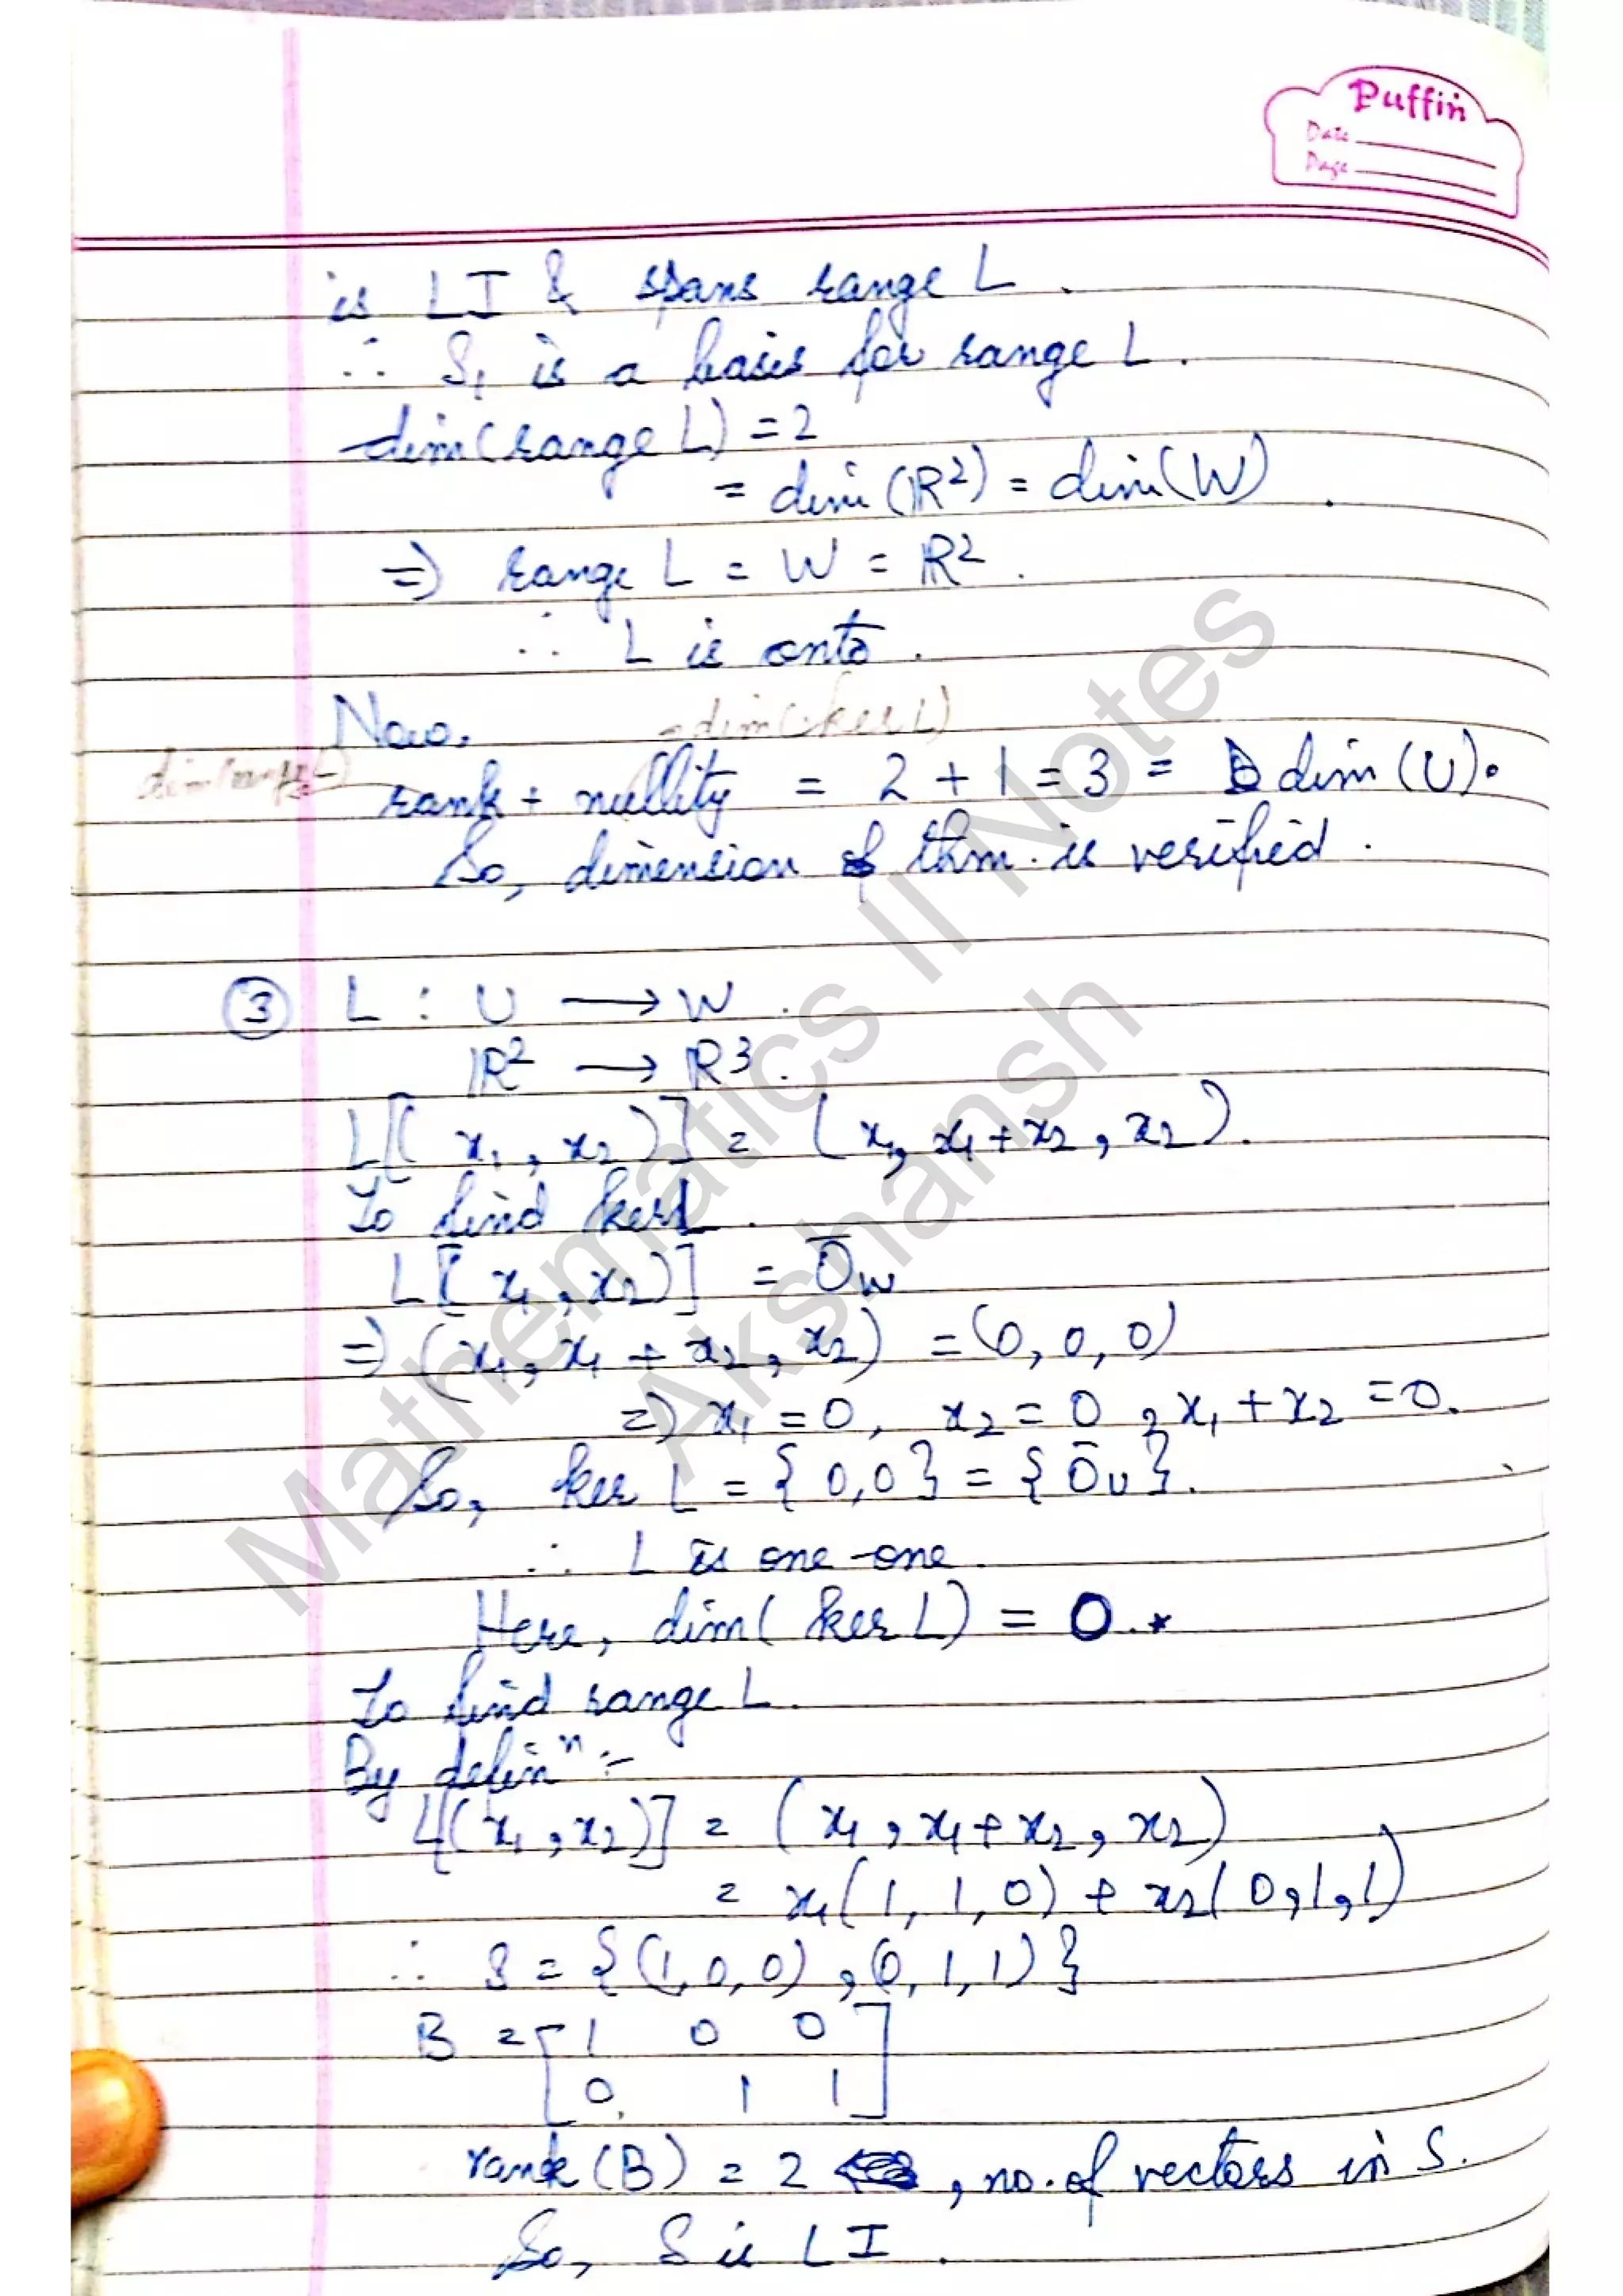 Puffin
Date
Page
is LI & spans range L.
∴ S₁ is a basis for range L.
dim(range L) = 2
= dim(ℝ²) = dim(W).
⇒ range L = W = ℝ².
∴ L is onto.
Now, = dim(ker L)
dim(range L)
rank + nullity = 2 + 1 = 3 = dim(U).
So, dimension of thm. is verified.
③ L : U → W.
ℝ² → ℝ³.
L[(x₁, x₂)] = (x₁, x₁+x₂, x₂).
To find ker L.
L[(x₁, x₂)] = 0̄w
⇒ (x₁, x₁ + x₂, x₂) = (0, 0, 0)
⇒ x₁ = 0, x₂ = 0, x₁ + x₂ = 0.
So, ker L = {0,0} = {0̄u}.
∴ L is one-one.
Here, dim(ker L) = 0.*
To find range L.
By definⁿ :-
L[(x₁, x₂)] = (x₁, x₁+x₂, x₂)
= x₁(1, 1, 0) + x₂(0, 1, 1)
∴ S = {(1, 0, 0), (0, 1, 1)}
B = [1 0 0
0 1 1]
rank(B) = 2, no. of vectors in S.
So, S is LI.
Mathematics II Notes
Akshansh